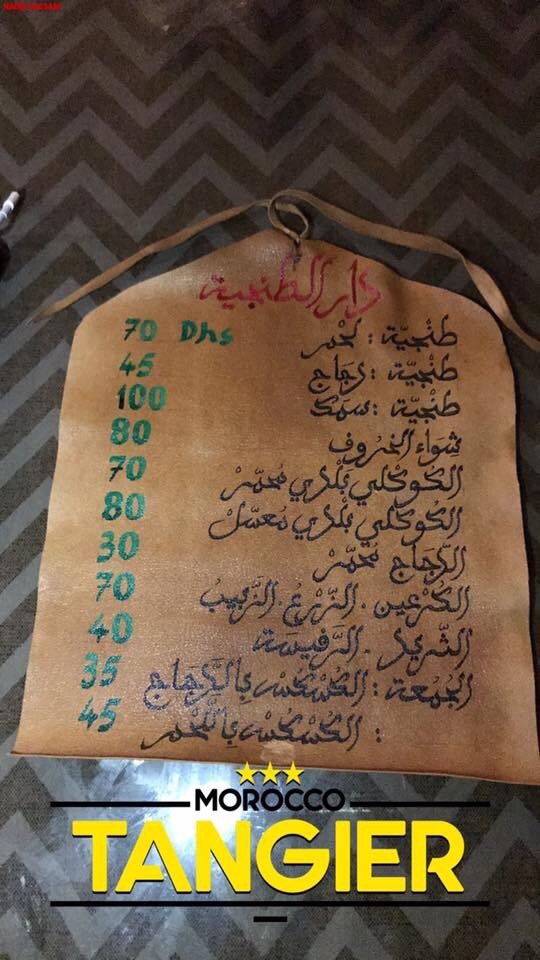 دار الطنجية
طنْجيّة : لحْم 70 Dhs
طنْجيّة : دجَاج 45
طنْجيّة : سمَك 100
شِوَاء الخرُوف 80
الكُوكْلي بلْدي مُحمّرْ 70
الكُوكْلي بلْدي مُعسّلْ 80
الدّجَاج مُحمّرْ 30
الكُرْعين . الزّرْعُ . الزّبيبُ 70
الثّريد . الرّفيسَة 40
الجُمْعة : الكُسْكسْ بِالدّجَاج 35
: الكُسْكسْ بِاللّحْمِ 45
MOROCCO
TANGIER